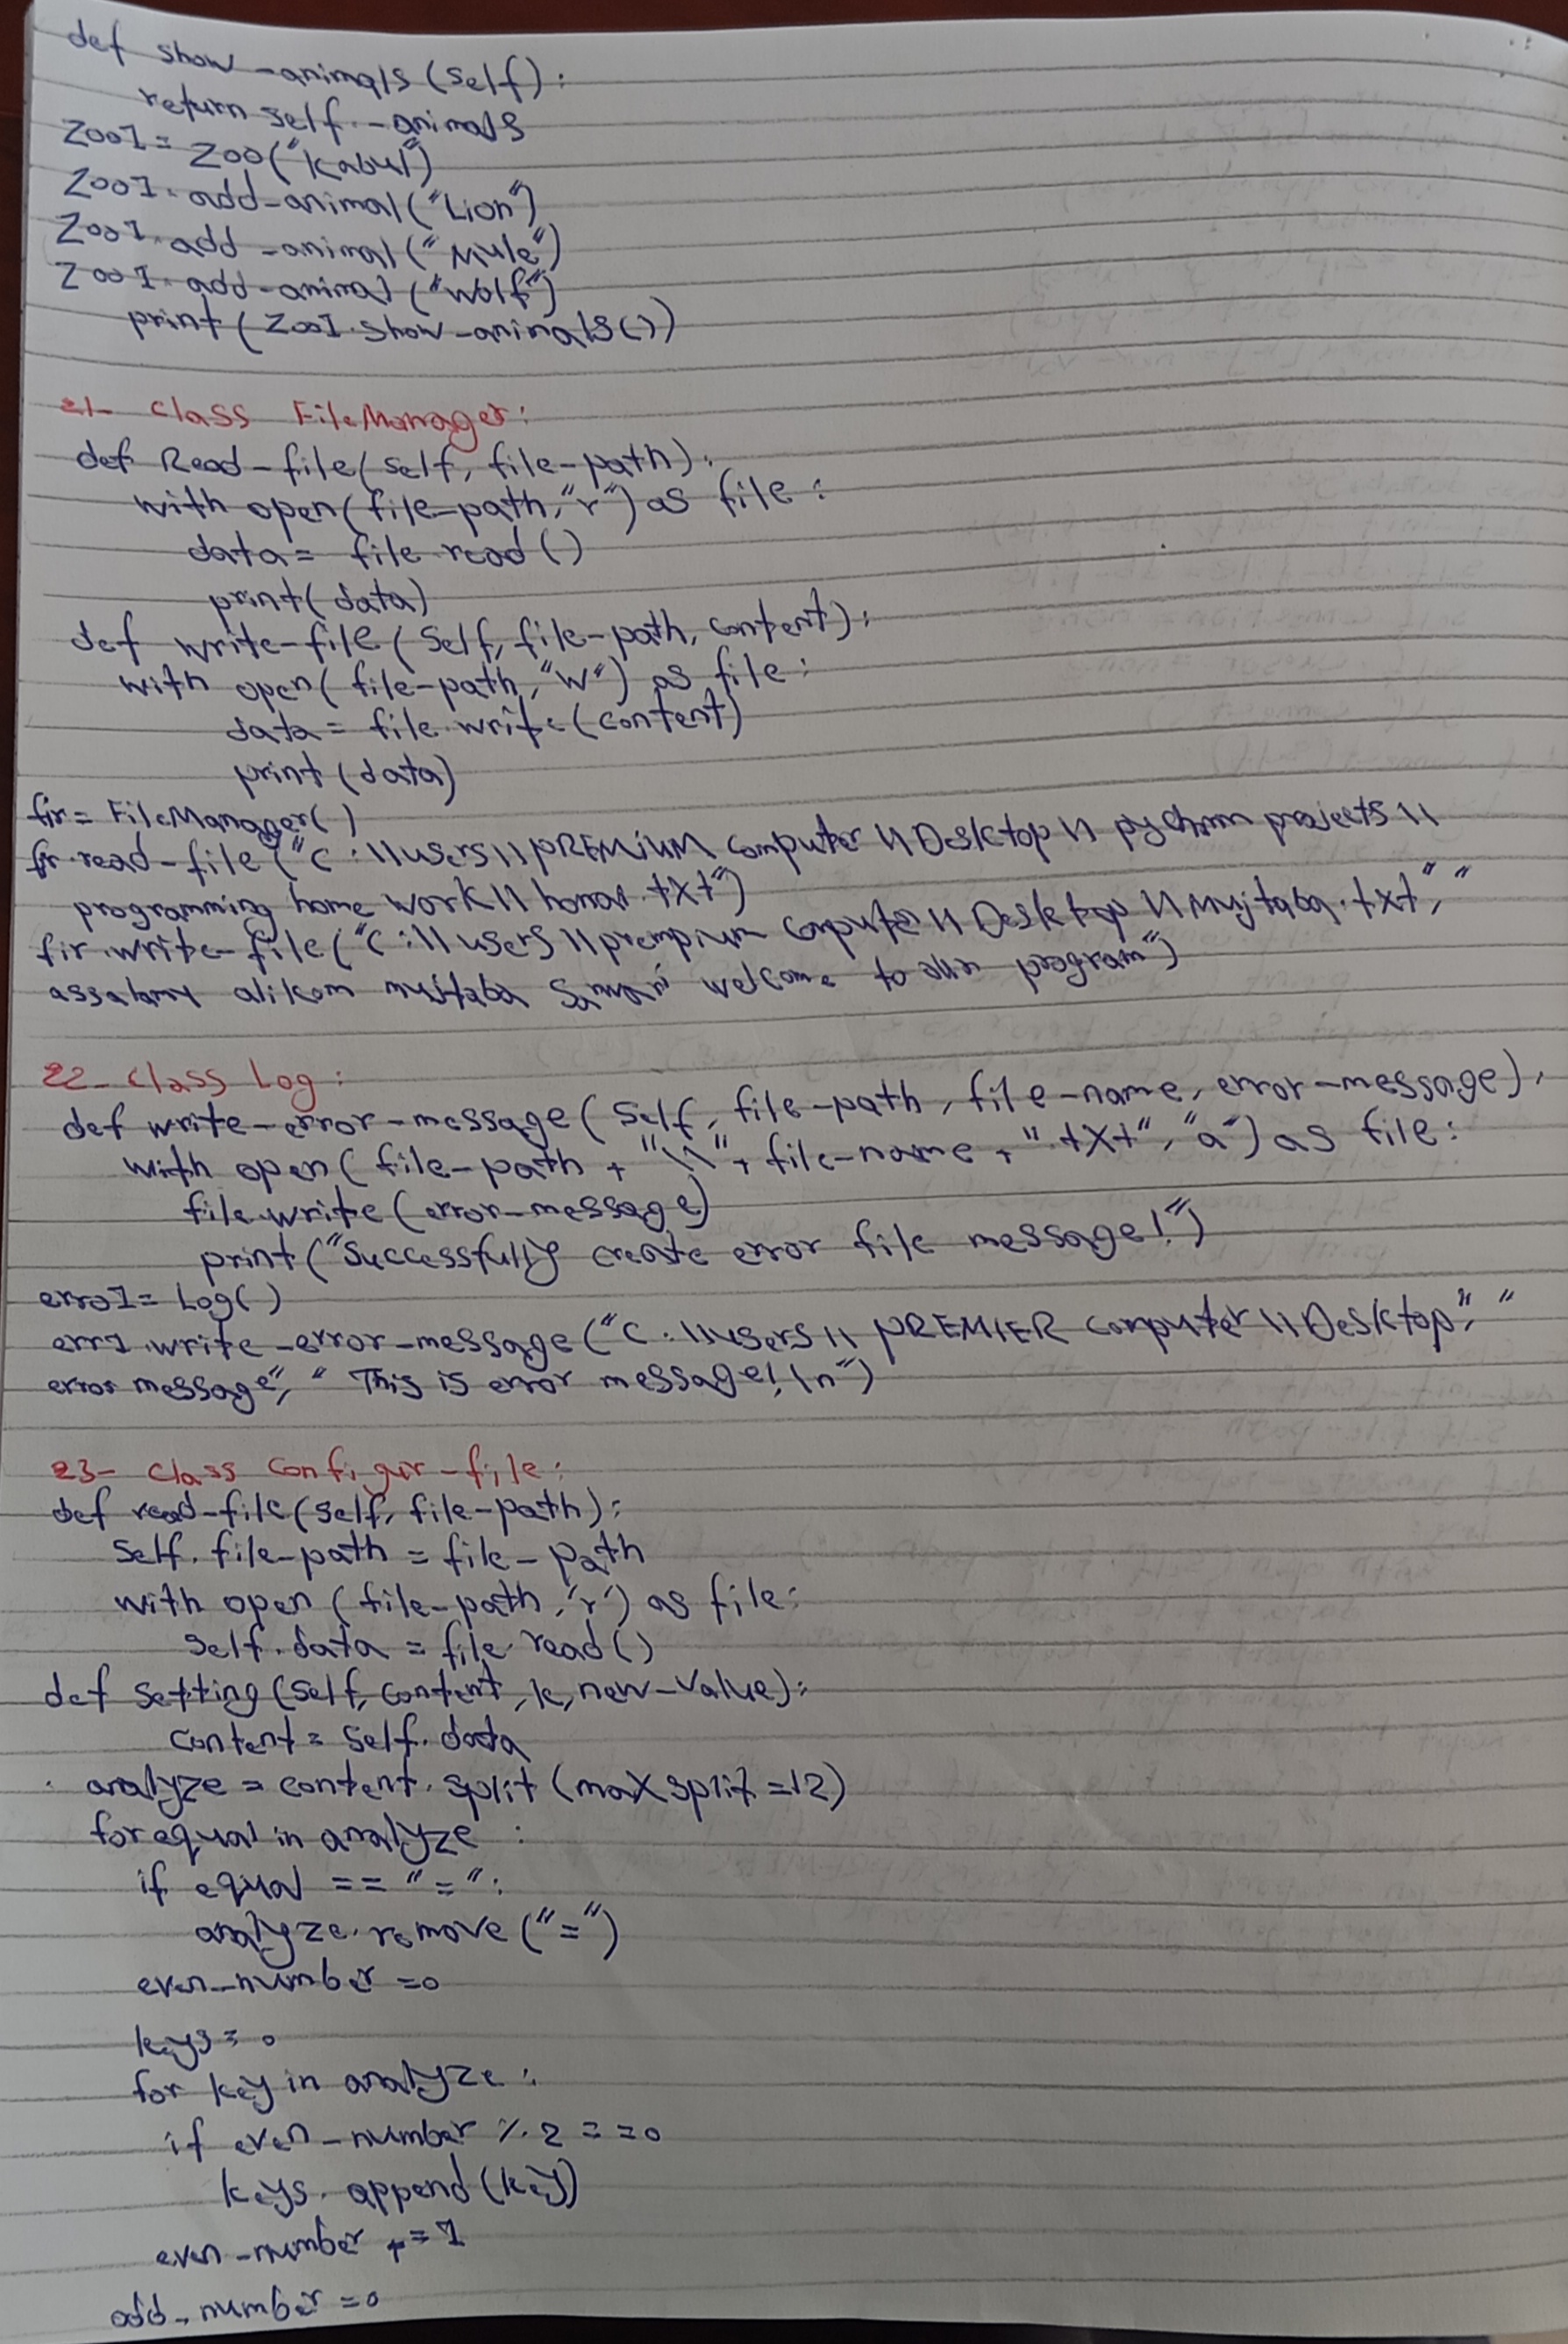 def show_animals(self):
return self._animals
Zoo1 = Zoo("Kabul")
Zoo1.add_animal("Lion")
Zoo1.add_animal("Mule")
Zoo1.add_animal("Wolf")
print(Zoo1.show_animals())
21- class FileManager:
def Read_file(self, file_path):
with open(file_path,"r") as file:
data = file.read()
print(data)
def write_file(self, file_path, content):
with open(file_path,"w") as file:
data = file.write(content)
print(data)
fir = FileManager()
fir.read_file("C:\\users\\PREMIUM computer\\Desktop\\pycharm projects\\
programming home work\\homar.txt")
fir.write_file("C:\\users\\prempium computer\\Desktop\\Mujtaba.txt","
assalamy alikom mujtaba Sarwari welcome to program")
22- class Log:
def write_error_message(self, file_path, file_name, error_message):
with open(file_path + "\\" + file_name + ".txt","a") as file:
file.write(error_message)
print("Successfully create error file message!")
erro1 = Log()
err1.write_error_message("C:\\users\\PREMIER computer\\Desktop","
error message"," This is error message!\n")
23- class Configur_file:
def read_file(self, file_path):
self.file_path = file_path
with open(file_path,'r') as file:
self.data = file.read()
def setting(self, content, k, new_value):
content = self.data
analyze = content.split(maxsplit=12)
for equal in analyze:
if equal == "=":
analyze.remove("=")
even_number = 0
keys = 0
for key in analyze:
if even_number % 2 == 0
keys.append(key)
even_number += 1
odd_number = 0